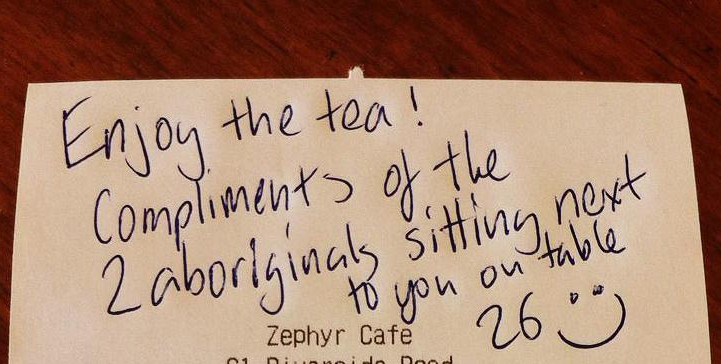 Enjoy the tea!
Compliments of the
2 aboriginals sitting next
to you on table
26
Zephyr Cafe